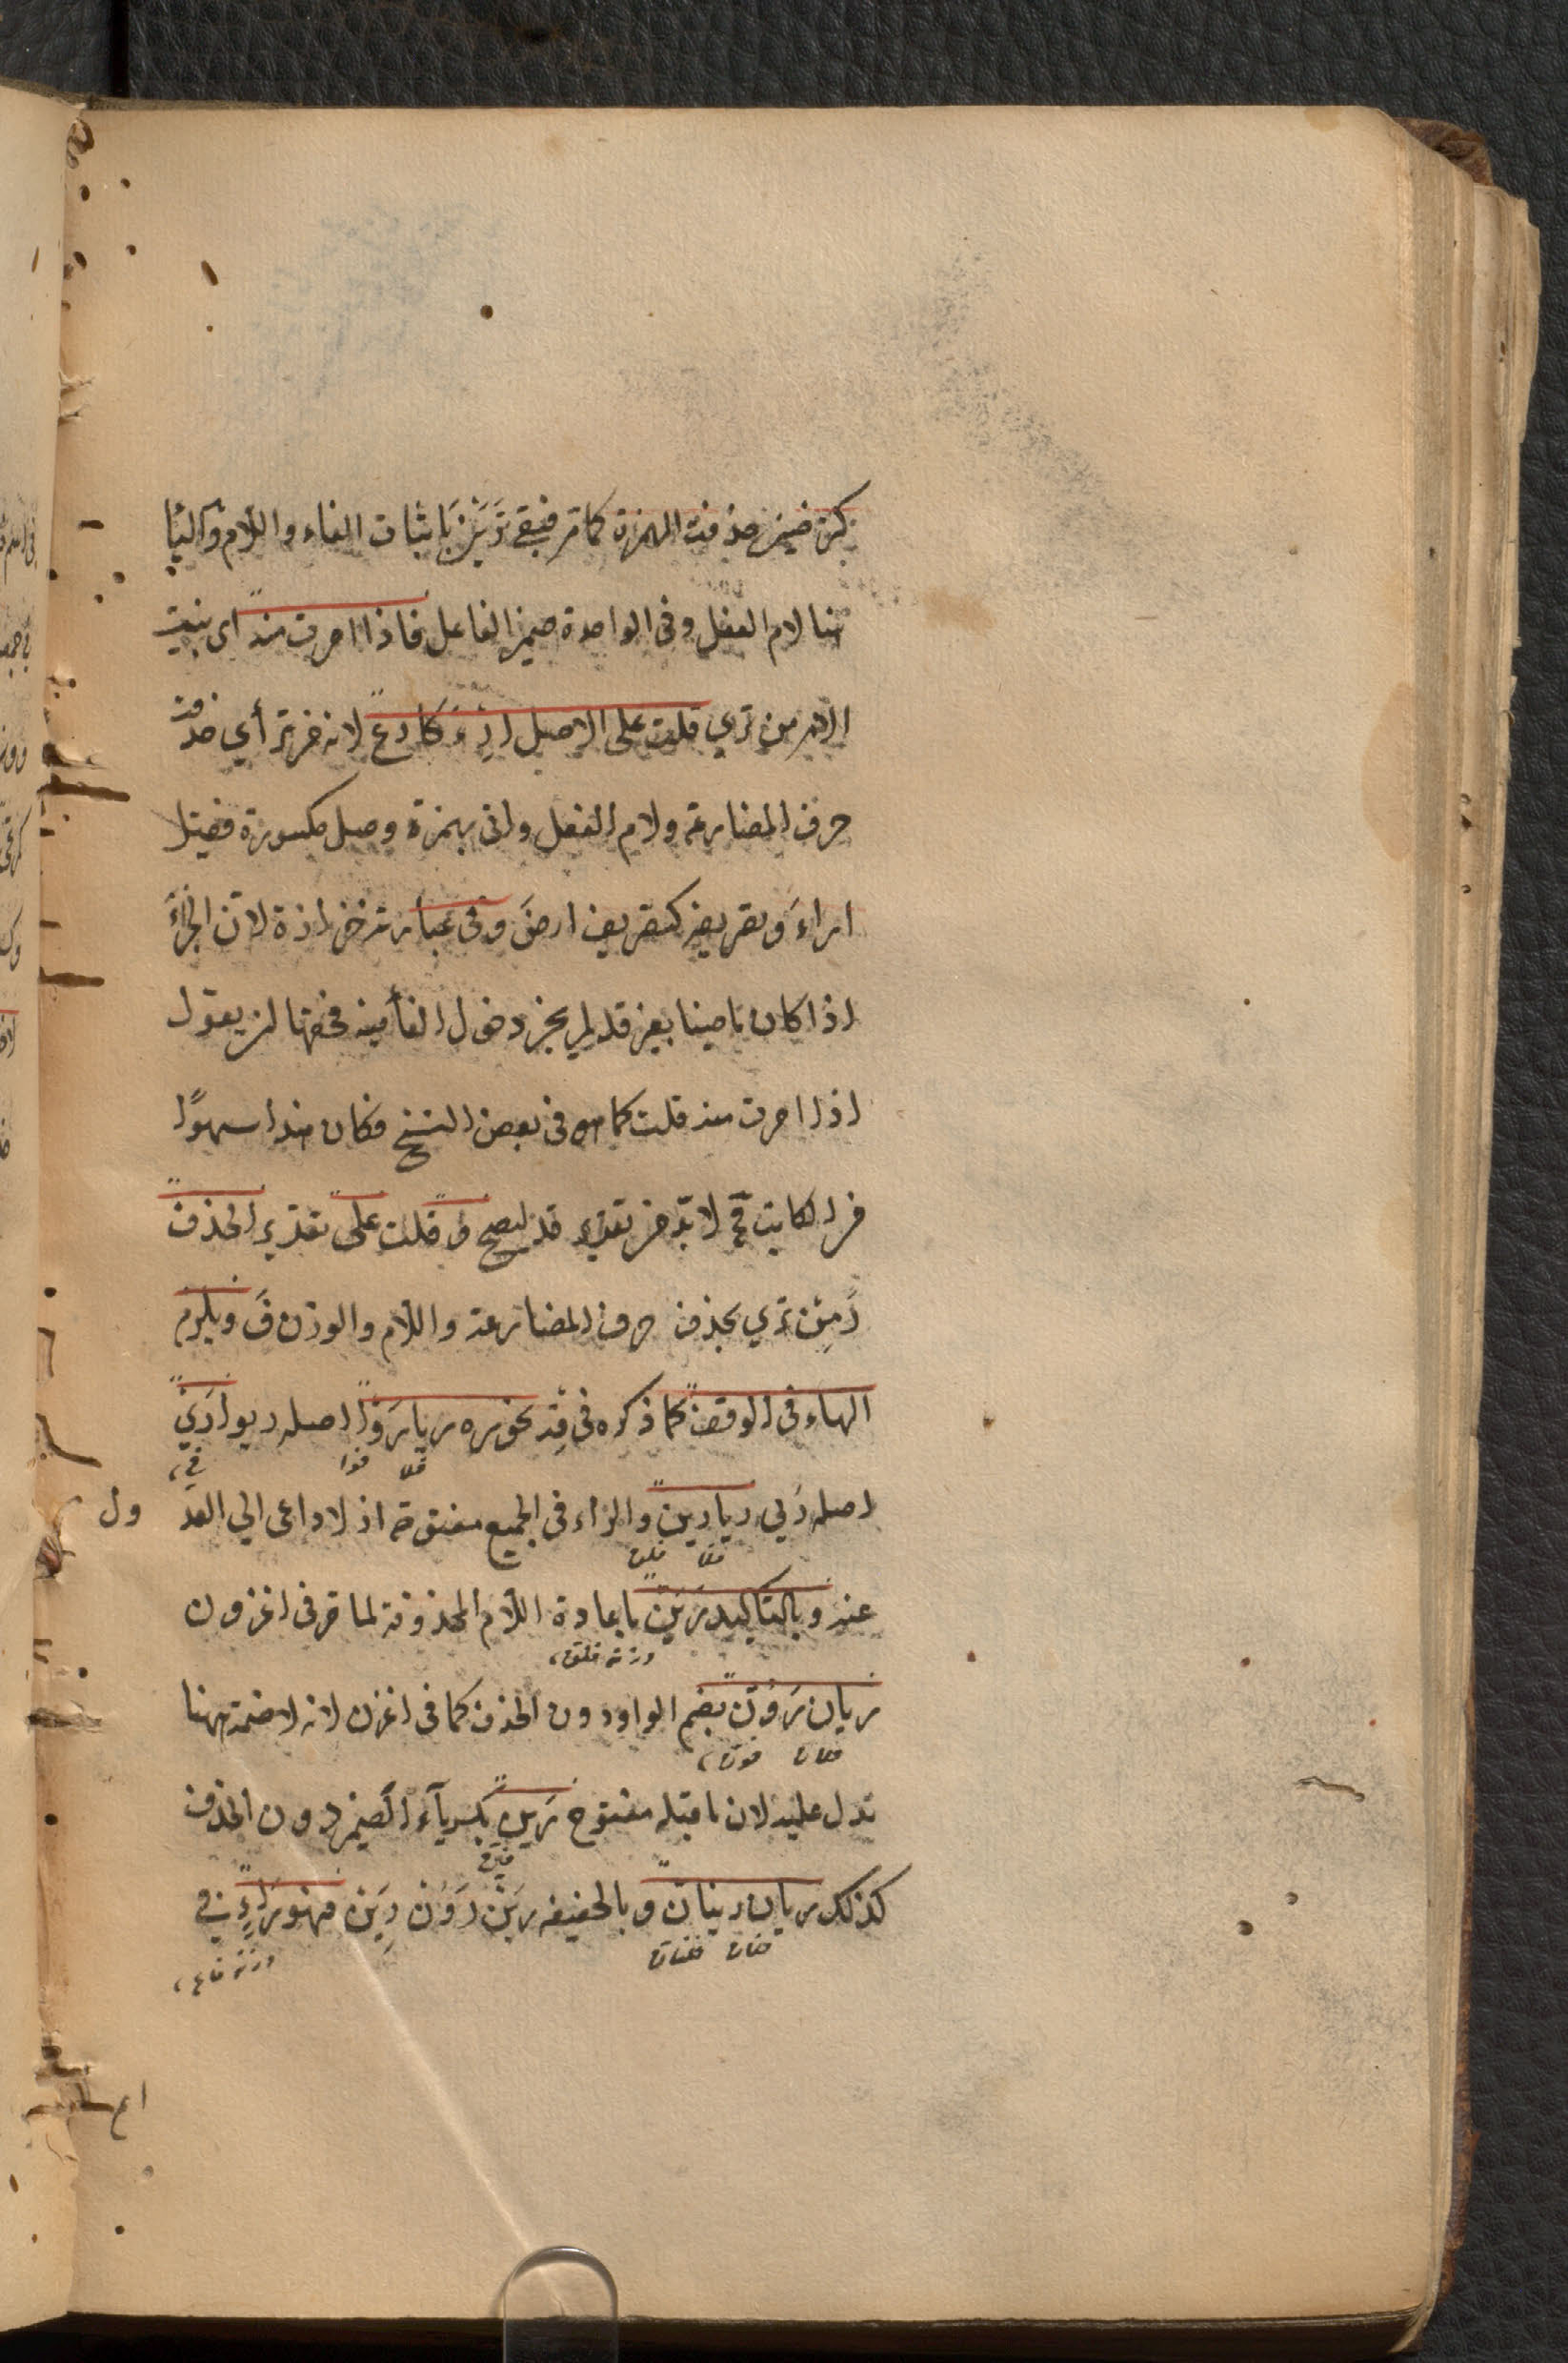 كترضين حذفت الهمزة كما مر فبقى ترين باثبات الفاء واللام والياء
هنا لام الفعل وفى الواحدة ضمير الفاعل فاذا امرت منه اى بنيت
الامر من ترى قلت على الاصل ارء كارع لانه من ترأي حذفت
حرف المضارعة ولام الفعل واتى بهمزة وصل مكسورة فصيل
اراء وتصريفه كتصريف ارض وفى عبارته حزازة لان الجزاء
اذا كان ماضيا بغير قد لم يجز دخول الفأ فيه فحقها ان يقول
اذا امرت منه قلت كما هو فى بعض النسخ فكان هذا سهوًا
من الكاتب فح لا بد من تقدير قد ليصح و قلت على تقدير الحذف
رَ من ترى بحذف حرف المضارعة واللام والوزن فَ ويلزم
الهاء فى الوقف كما ذكره فى قِه نحو ره ريا رَوا اصله ريوا رَيْ
فلا فوا فى
اصله رَيى ريا رين والراء فى الجميع مفتوحة اذ لا داعى الى العدول
فلا فلن
عنه وبالتأكيد رَيَنّ باعادة اللام المحذوفة لما مر فى اغزون
وزنه فلن
ريان رَوُنّ بضم الواو دون الحذف كما فى اغزن لانه لا ضمة هنا
فلان فون
تدل عليه لان ما قبله مفتوح رَيِنّ بكسر يآء الضمير دون الحذف
فين
كذلك ريان رينان وبالخفيفه رَيَنْ رَوُنْ رَيِنْ فهو رَاءٍ فى
فلان فلنان وزنه فاع